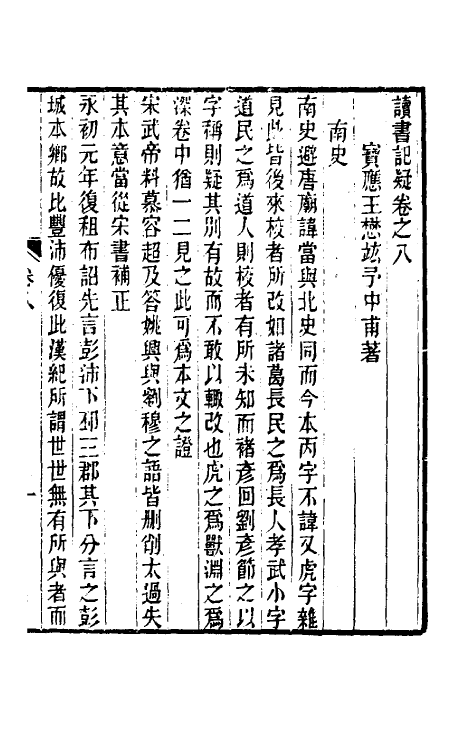 讀書記疑卷之八
寶應王懋竑予中甫著
南史
南史避唐廟諱當與北史同而今本丙字不諱又虎字雜
見此皆後來校者所改如諸葛長民之爲長人孝武小字
道民之爲道人則校者有所未知而褚彥回劉彥節之以
字稱則疑其別有故而不敢以輒改也虎之爲獸淵之爲
深卷中猶一二見之此可爲本文之證
宋武帝料慕容超及答姚興與劉穆之語皆刪削太過失
其本意當從宋書補正
永初元年復租布詔先言彭沛下邳三郡其下分言之彭
城本鄉故比豐沛優復此漢紀所謂世世無有所與者而
卷八
一